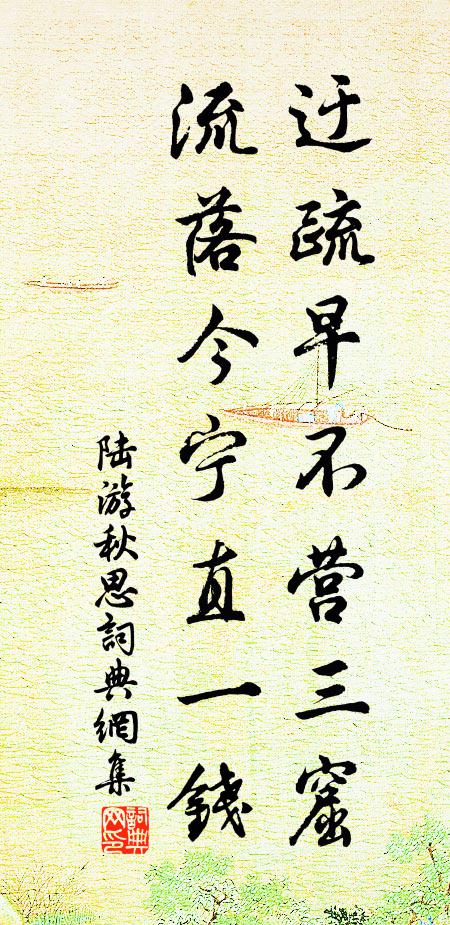 迂疏早不营三窟
流落今宁直一钱
陆游秋思詞典網集
詞典
网印